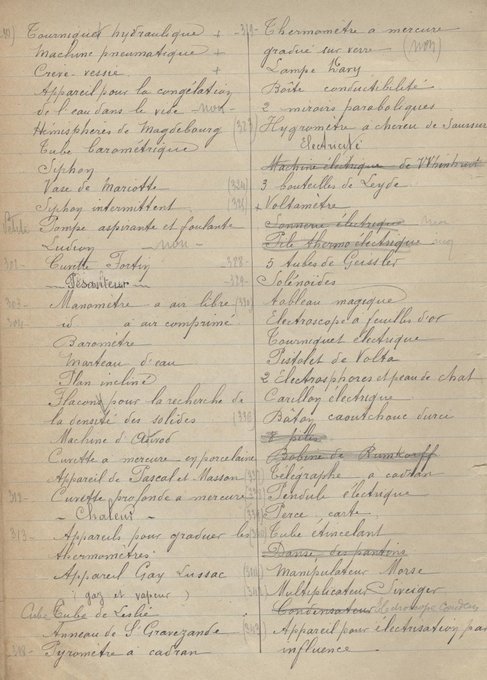 Tourniquet hydraulique +
Machine pneumatique +
Crève-vessie +
Appareil pour la congélation
de l'eau dans le vide - non -
Hémisphères de Magdebourg (323
Tube barométrique
Syphon
Vase de Mariotte (324)
Syphon intermittent (325)
Pompe aspirante et foulante
Ludion - non -
302 - Cuvette Fortin - 328 -
- Pesanteur - - 329 -
303 - Manomètre a air libre (330)
304 id a air comprimé
Baromètre
Marteau d'eau
Plan incliné
Flacons pour la recherche de
la densité des solides (336
Machine d'Atwod
Cuvette a mercure en porcelaine
Appareil de Pascal et Masson (33
312 - Cuvette profonde a mercure
- Chaleur -
313 - Appareils pour graduer les
thermomètres
Appareil Gay Lussac
(gaz et vapeur)
Cube Tube de Leslie
Anneau de S'Gravezande
318 - Pyromètre à cadran
- 319 - Thermomètre a mercure
gradué sur verre (non)
Lampe Davy
Boîte conductibilité
2 miroirs paraboliques
Hygromètre a cheveu de Saussure
Electricité
Machine électrique de Whimhurst
3 bouteilles de Leyde
+ Voltamètre
Sonnerie électrique non
Pile thermo électrique
5 tubes de Geissler
Solénoïdes
Tableau magique
Electroscope a feuilles d'or
Tourniquet électrique
Pistolet de Volta
2 Electrosphores et peau de chat
Carillon électrique
Bâton caoutchouc durci
piles
Bobine de Rumkorff
Télégraphe a cadran
Pendule électrique
Perce carte
Tube étincelant
Danse des pantins
Manipulateur Morse
Multiplicateur
Condensateur
Appareil pour électrisation par
influence